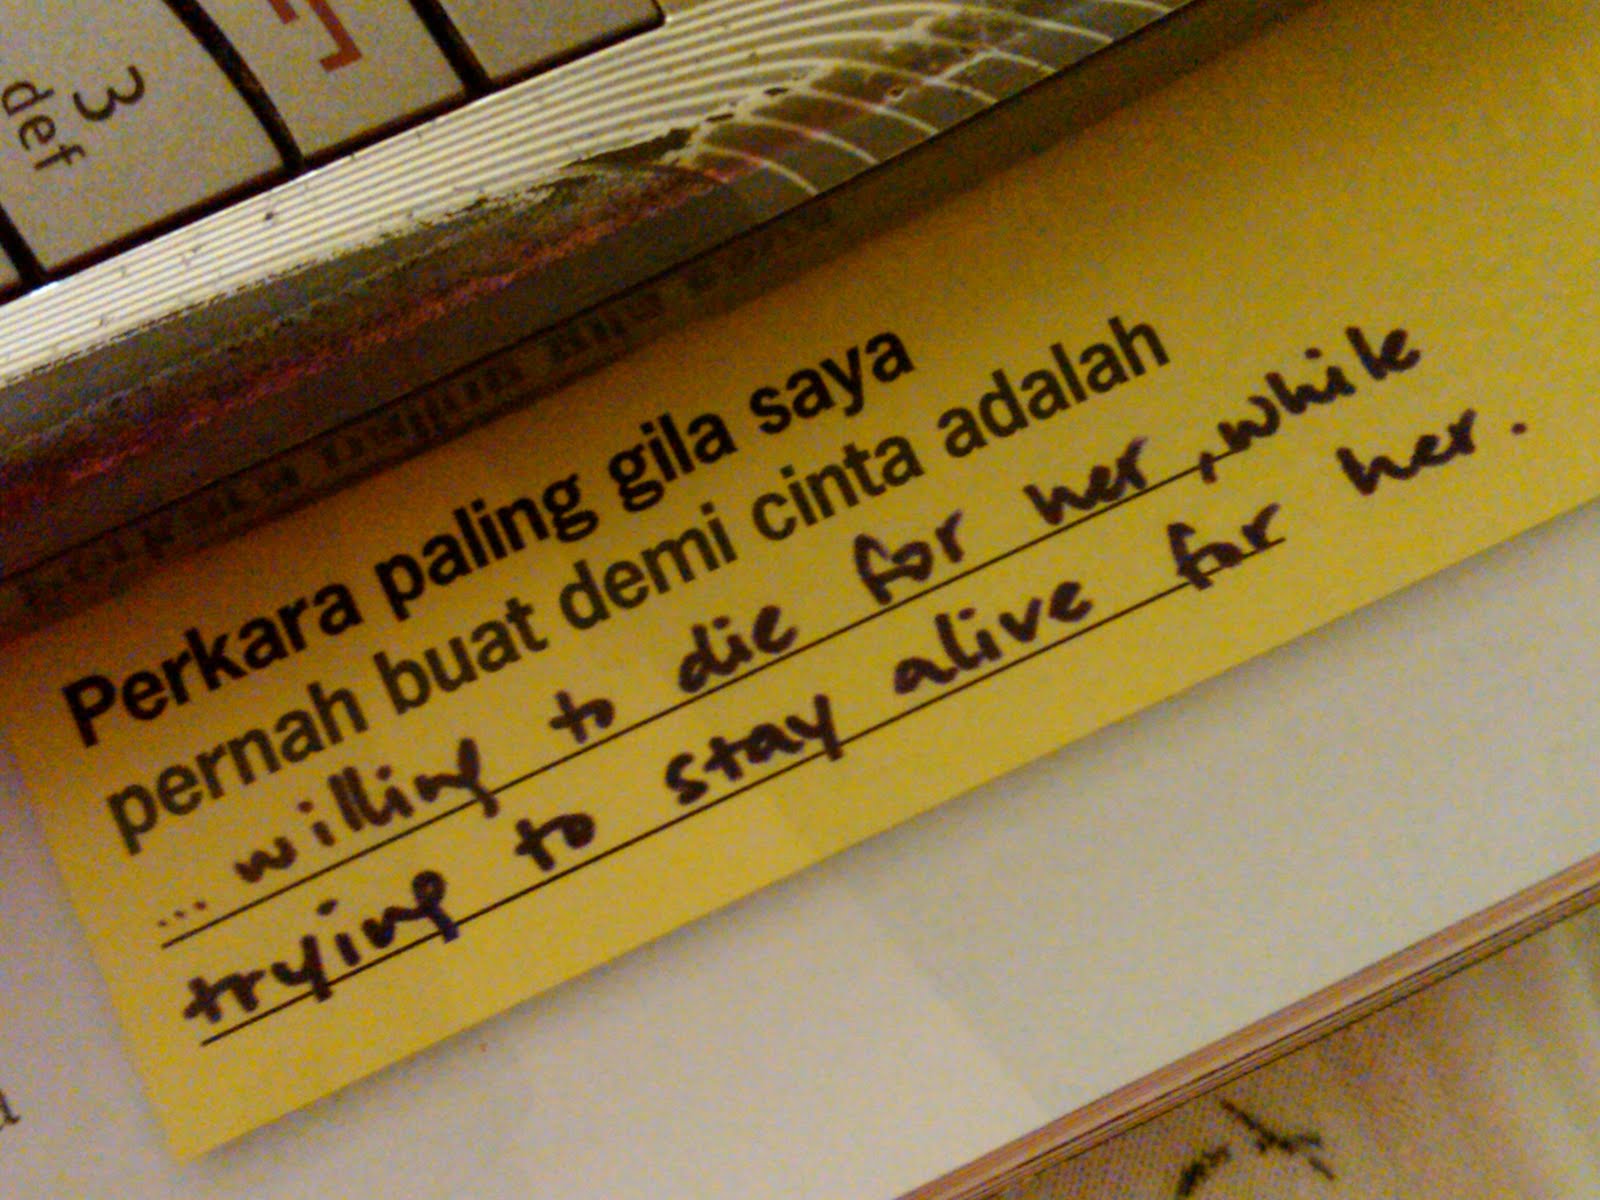 3
def
Perkara paling gila saya
pernah buat demi cinta adalah
... willing to die for her, while
trying to stay alive for her.